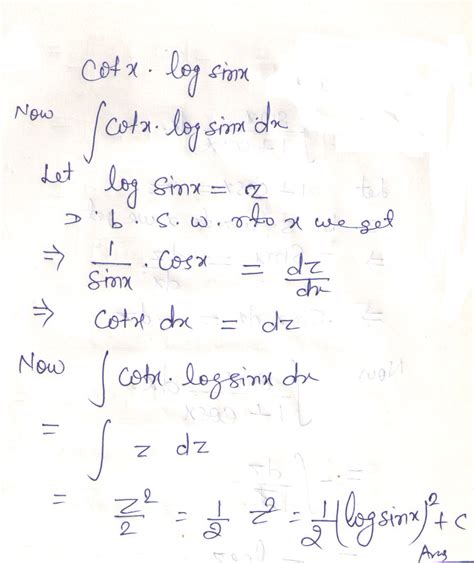 cotx · log sinx
Now ∫ cotx · log sinx dx
Let log sinx = z
D · b · s · w · r to x we get
⇒ 1/sinx · cosx = dz/dx
⇒ cotx dx = dz
Now ∫ cotx · log sinx dx
= ∫ z dz
= z²/2 = 1/2 z² = 1/2 (log sinx)² + C
Ans